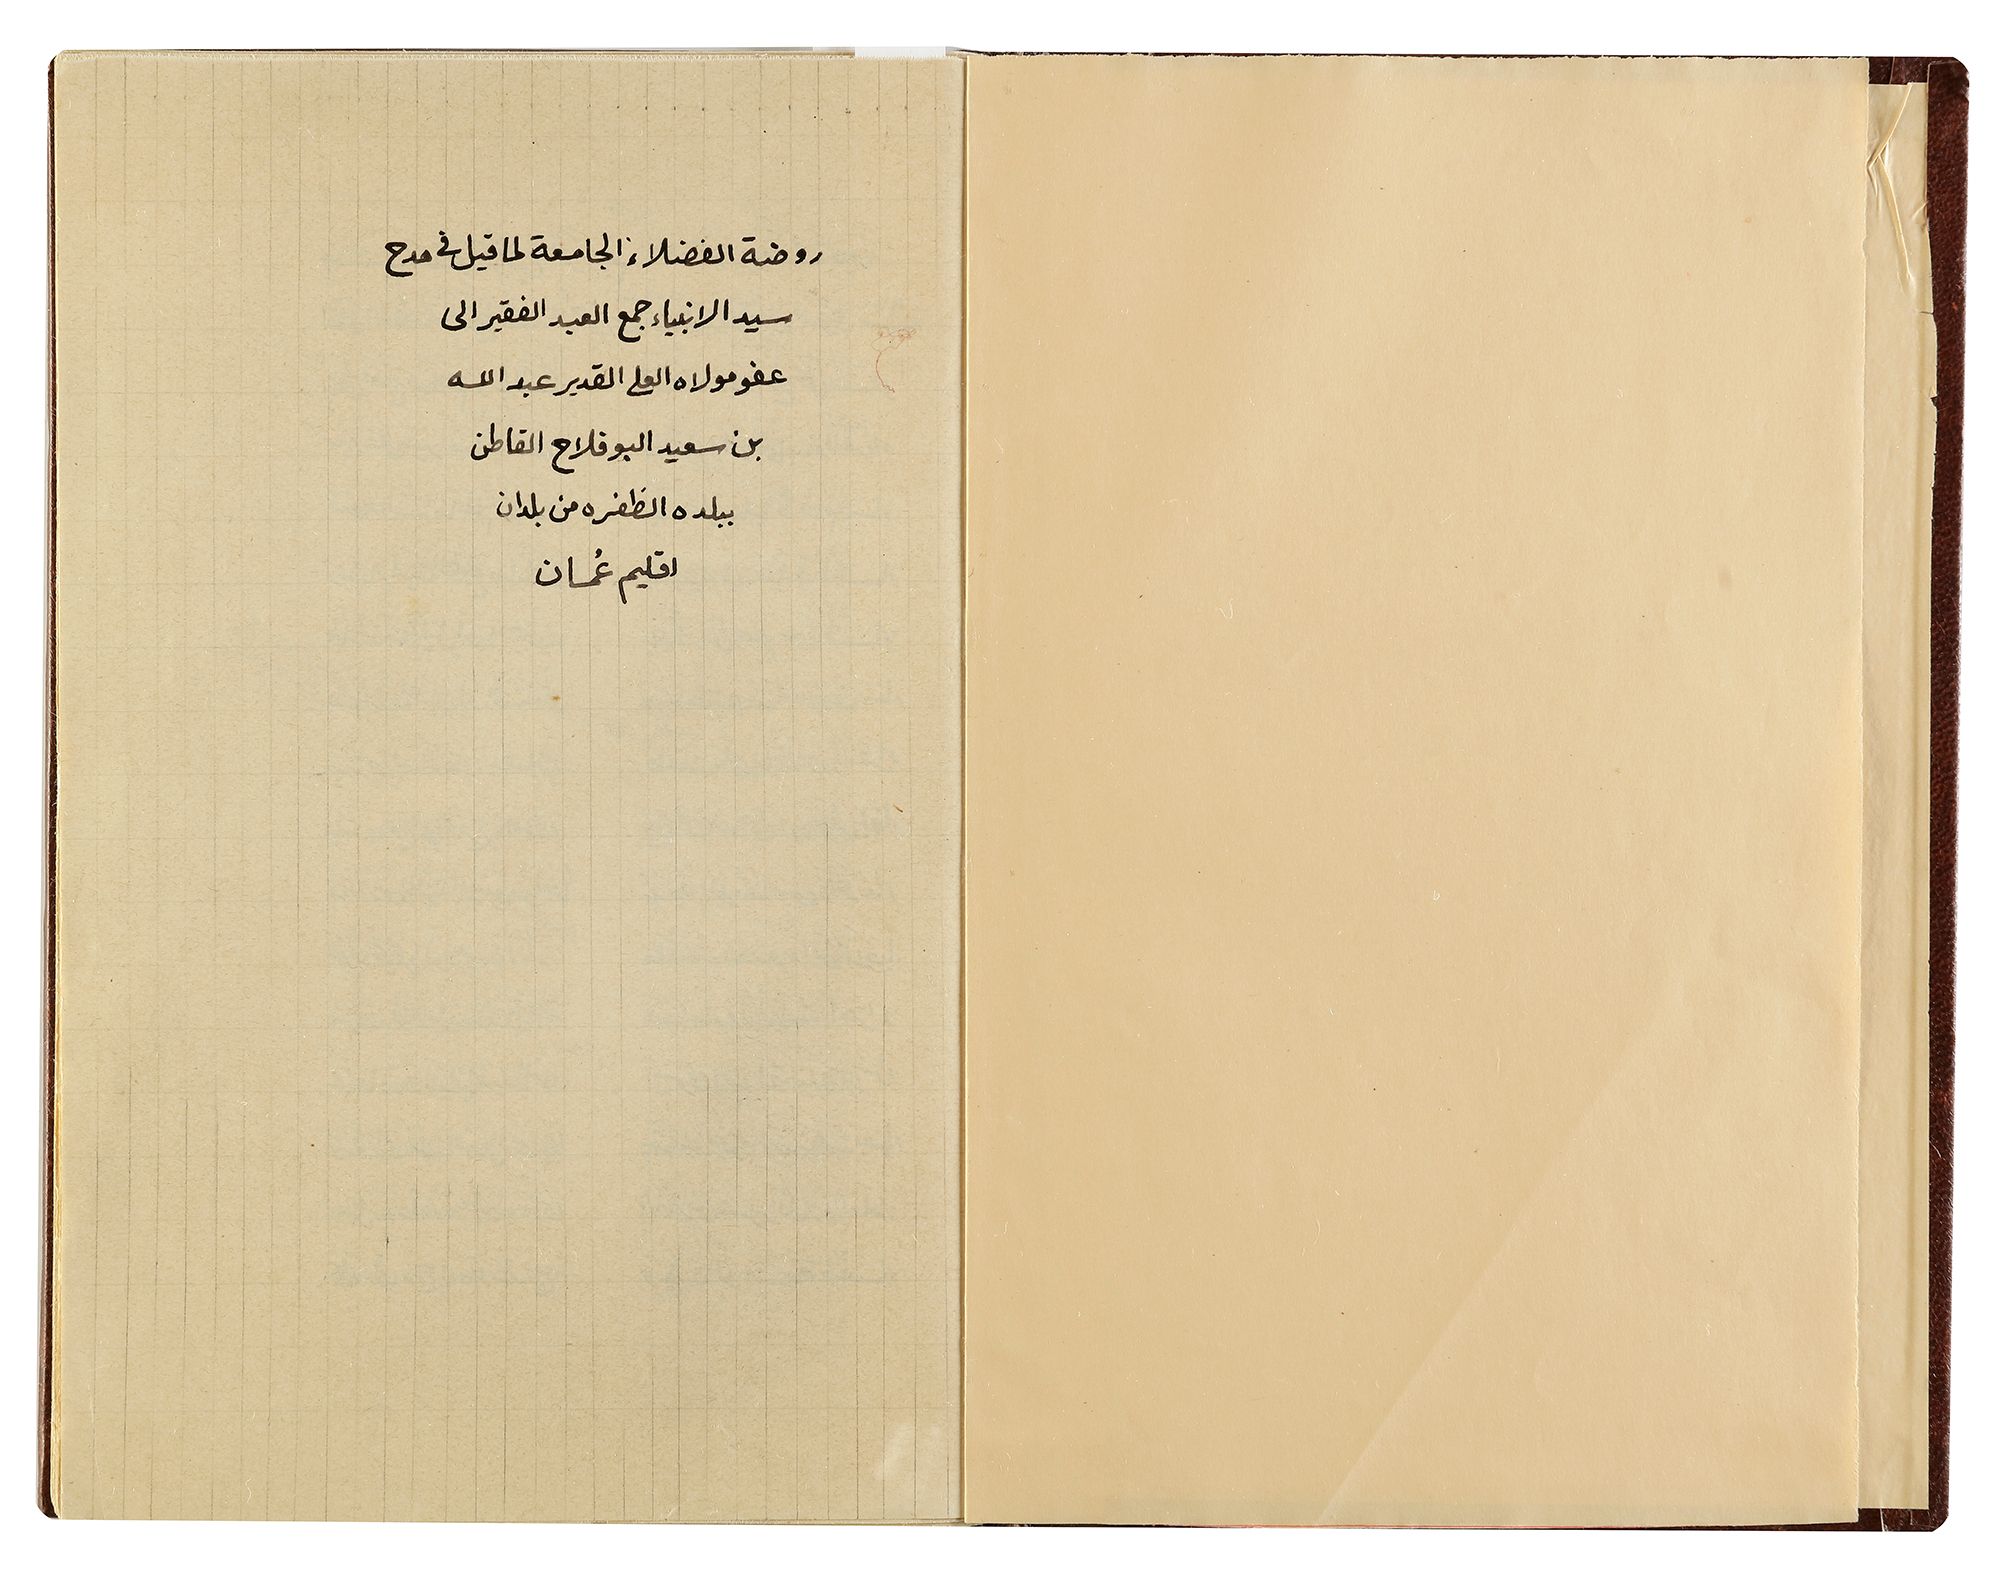 روضة الفضلاء الجامعة لما قيل في مدح
سيد الانبياء جمع العبد الفقير الى
عفو مولاه العلي القدير عبد الله
بن سعيد البوفلاح القاطن
ببلده الظفره من بلدان
اقليم عُمان